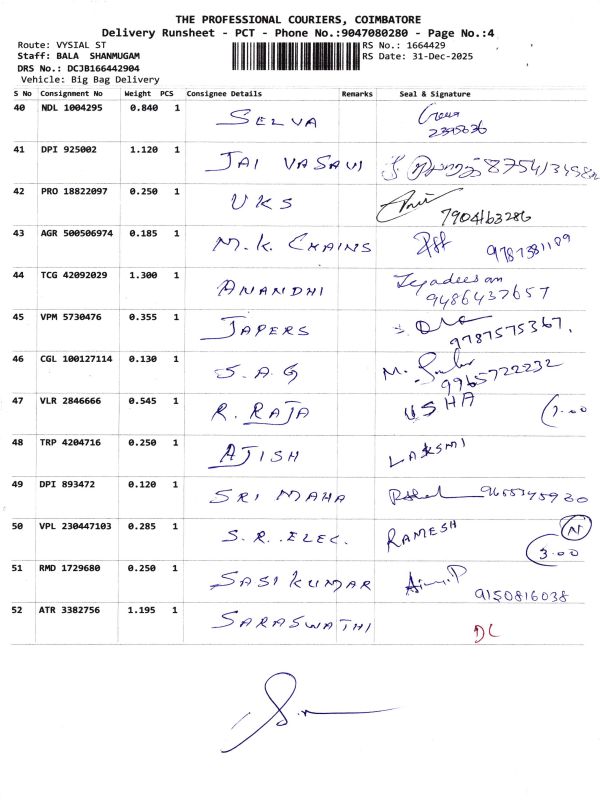 THE PROFESSIONAL COURIERS, COIMBATORE
Delivery Runsheet - PCT - Phone No.:9047080280 - Page No.:4
Route: VYSIAL ST RS No.: 1664429
Staff: BALA SHANMUGAM RS Date: 31-Dec-2025
DRS No.: DCJB166442904
Vehicle: Big Bag Delivery
S No Consignment No Weight PCS Consignee Details Remarks Seal & Signature
40 NDL 1004295 0.840 1 SELVA
2395636
41 DPI 925002 1.120 1 JAI VASAVI
42 PRO 18822097 0.250 1 UKS
7904163286
43 AGR 500506974 0.185 1 M.K. CHAINS 9787381109
44 TCG 42092029 1.300 1 ANANDHI
9486437657
45 VPM 5730476 0.355 1 JAPERS
9787575367.
46 CGL 100127114 0.130 1 S.A.G M.
9965722232
47 VLR 2846666 0.545 1 R. RAJA USHA 7.00
48 TRP 4204716 0.250 1 AJISH LAKSMI
49 DPI 893472 0.120 1 SRI MAHA 9655345930
50 VPL 230447103 0.285 1 S.R. ELEC. RAMESH N
3.00
51 RMD 1729680 0.250 1 SASIKUMAR
9150816038
52 ATR 3382756 1.195 1 SARASWATHI
DL